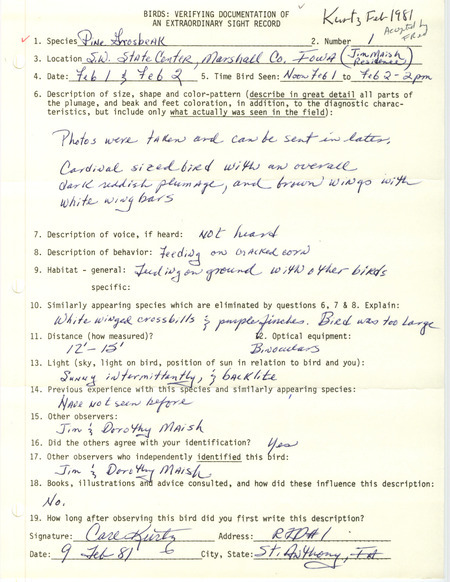 BIRDS: VERIFYING DOCUMENTATION OF
AN EXTRAORDINARY SIGHT RECORD
Kurtz Feb 1981
Accepted by
1. Species Pine Grosbeak 2. Number 1
3. Location S.W. State Center, Marshall Co. Iowa (Jim Maish Residence)
4. Date: Feb 1 & Feb 2 5. Time Bird Seen: Noon Feb 1 to Feb 2 - 2pm
6. Description of size, shape and color-pattern (describe in great detail all parts of
the plumage, and beak and feet coloration, in addition, to the diagnostic charac-
teristics, but include only what actually was seen in the field):
Photos were taken and can be sent in later.
Cardinal sized bird with an overall
dark reddish plumage, and brown wings with
white wing bars
7. Description of voice, if heard: Not heard
8. Description of behavior: Feeding on cracked corn
9. Habitat - general: Feeding on ground with other birds
specific:
10. Similarly appearing species which are eliminated by questions 6, 7 & 8. Explain:
White winged crossbills & purple finches. Bird was too large
11. Distance (how measured)? 12. Optical equipment:
12'- 15' Binoculars
13. Light (sky, light on bird, position of sun in relation to bird and you):
Sunny intermittantly, & backlite
14. Previous experience with this species and similarly appearing species:
Have not seen before
15. Other observers:
Jim & Dorothy Maish
16. Did the others agree with your identification? Yes
17. Other observers who independently identified this bird:
Jim & Dorothy Maish
18. Books, illustrations and advice consulted, and how did these influence this description:
No.
19. How long after observing this bird did you first write this description?
Signature: Carl Kurtz Address: RFD#1
Date: 9 Feb 81 6 City, State: St. Anthony, IA